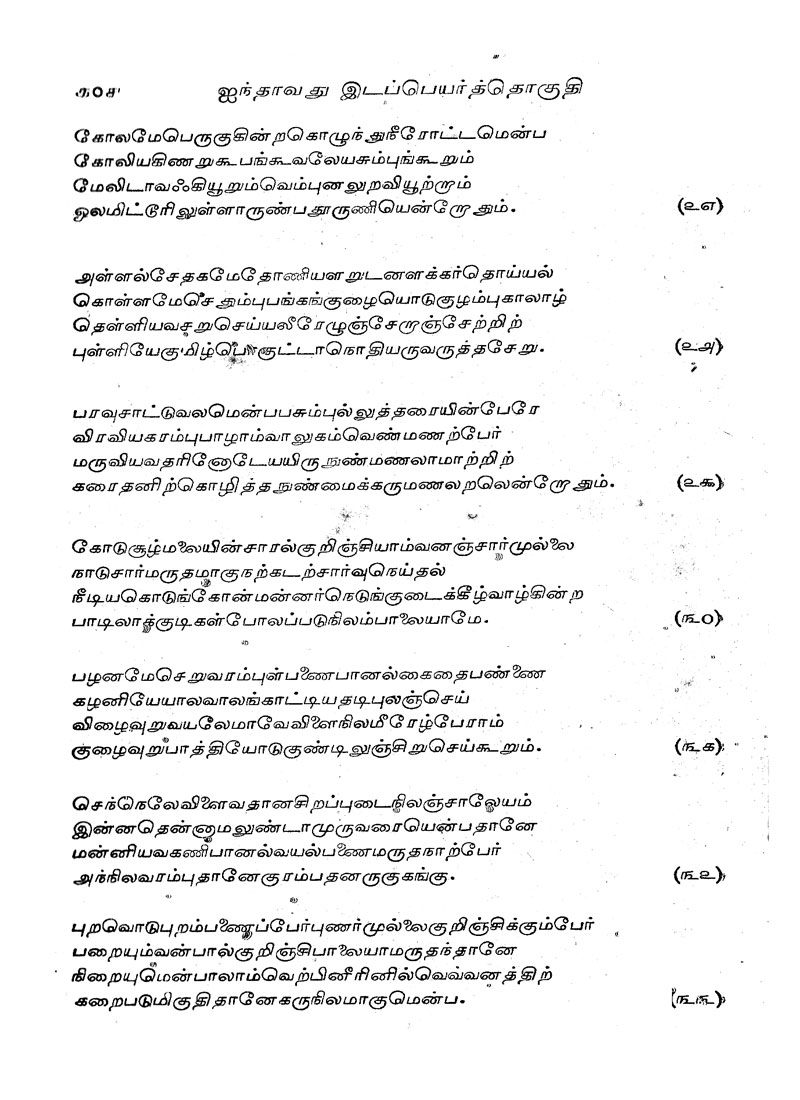 ௩0௪ ஐந்தாவது இடப்பெயர்த்தொகுதி
கோலமேபெருகுகின்றகொழுந்துநீரோட்டமென்ப
கோலியகிணறுகூபங்கூவலேயசும்புங்கூறும்
மேலிடாவஃகியூறும்வெம்புனலுறவியூற்றாம்
ஓலமிட்டூரிலுள்ளாருண்பதூருணியென்றோதும். (௨௭)
அள்ளல்சேதகமேதோணியளறுடனளக்கர்தொய்யல்
கொள்ளமேசெதும்புபங்கங்குழையொடுகுழம்புகாலாழ்
தெள்ளியவசறுசெய்யலீரேழுஞ்சேறாஞ்சேற்றிற்
புள்ளியேகுமிழ்பெகுட்டாநொதியருவருத்தசேறு. (௨௮)
பரவுசாட்டுவலமென்பபசும்புல்லுத்தரையின்பேரே
விரவியகரம்புபாழாம்வாலுகம்வெண்மணற்பேர்
மருவியவதரினோடேயயிருநுண்மணலாமாற்றிற்
கரைதனிற்கொழித்தநுண்மைக்கருமணலறலென்றோதும். (௨௯)
கோடுசூழ்மலையின்சாரல்குறிஞ்சியாம்வனஞ்சார்முல்லை
நாடுசார்மருதமாகுநற்கடற்சார்வுநெய்தல்
நீடியகொடுங்கோன்மன்னர்நெடுங்குடைக்கீழ்வாழ்கின்ற
பாடிலாக்குடிகள்போலப்படுநிலம்பாலையாமே. (௩0)
பழனமேசெறுவரம்புள்பணைபானல்கைதைபண்ணை
கழனியேயாலவாலங்காட்டியதடிபுலஞ்செய்
விழைவுறுவயலேமாவேவிளைநிலமீரேழ்பேராம்
குழைவுறுபாத்தியோடுகுண்டிலுஞ்சிறுசெய்கூறும். (௩௧)
செந்நெலேவிளைவதானசிறப்புடைநிலஞ்சாலேயம்
இன்னதென்னாமலுண்டாமுருவரையென்பதானே
மன்னியவகணிபானல்வயல்பணைமருதநாற்பேர்
அந்நிலவரம்புதானேகுரம்பதனருகுகங்கு. (௩௨)
புறவொடுபுறம்பணைப்பேர்புணர்முல்லைகுறிஞ்சிக்கும்பேர்
பறையும்வன்பால்குறிஞ்சிபாலையாமருதந்தானே
நிறையுமென்பாலாம்வெற்பினீரினில்வெவ்வனத்திற்
கறைபடுமிகுதிதானேகருநிலமாகுமென்ப. (௩௩)